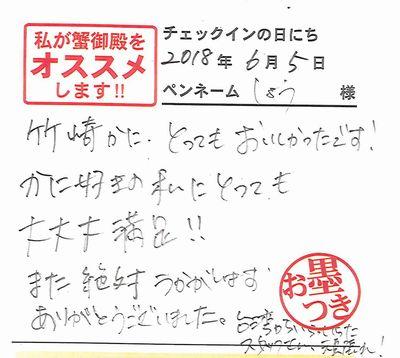 私が蟹御殿を
オススメ
します!!
チェックインの日にち
2018年 6月 5日
ペンネーム しょう 様
竹崎かに、とってもおいしかったです!
かに好きの私にとっても
大大大満足!!
また絶対うかがいます
ありがとうございました。
お墨つき
スタッフさん、頑張れ!